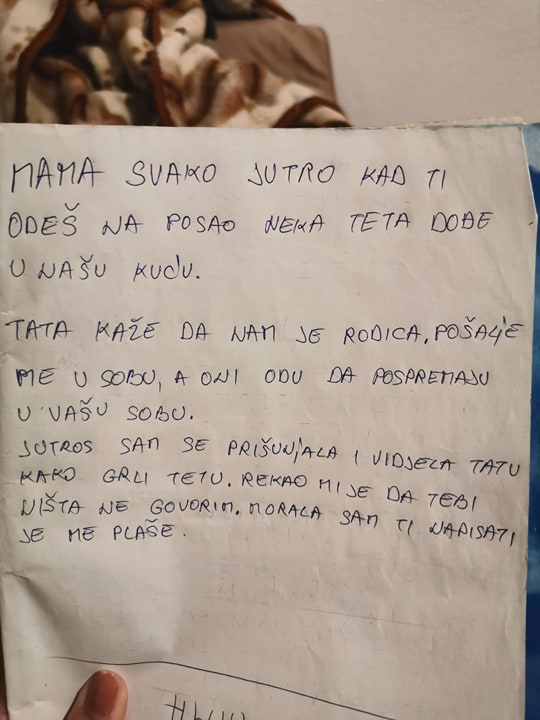 MAMA SVAKO JUTRO KAD TI
ODEŠ NA POSAO NEKA TETA DOĐE
U NAŠU KUĆU.
TATA KAŽE DA NAM JE RODICA. POŠALJE
ME U SOBU, A ONI ODU DA POSPREMAJU
U VAŠU SOBU.
JUTROS SAM SE PRIŠUNJALA I VIDJELA TATU
KAKO GRLI TETU. REKAO MI JE DA TEBI
NIŠTA NE GOVORIM. MORALA SAM TI NAPISATI
JE ME PLAŠE.